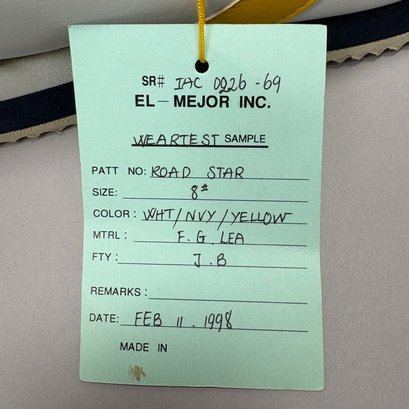 SR# IAC 0026-69
EL-MEJOR INC.
WEARTEST SAMPLE
PATT NO: ROAD STAR
SIZE: 8#
COLOR: WHT/NVY/YELLOW
MTRL: F.G. LEA
FTY: J.B
REMARKS:
DATE: FEB 11. 1998
MADE IN